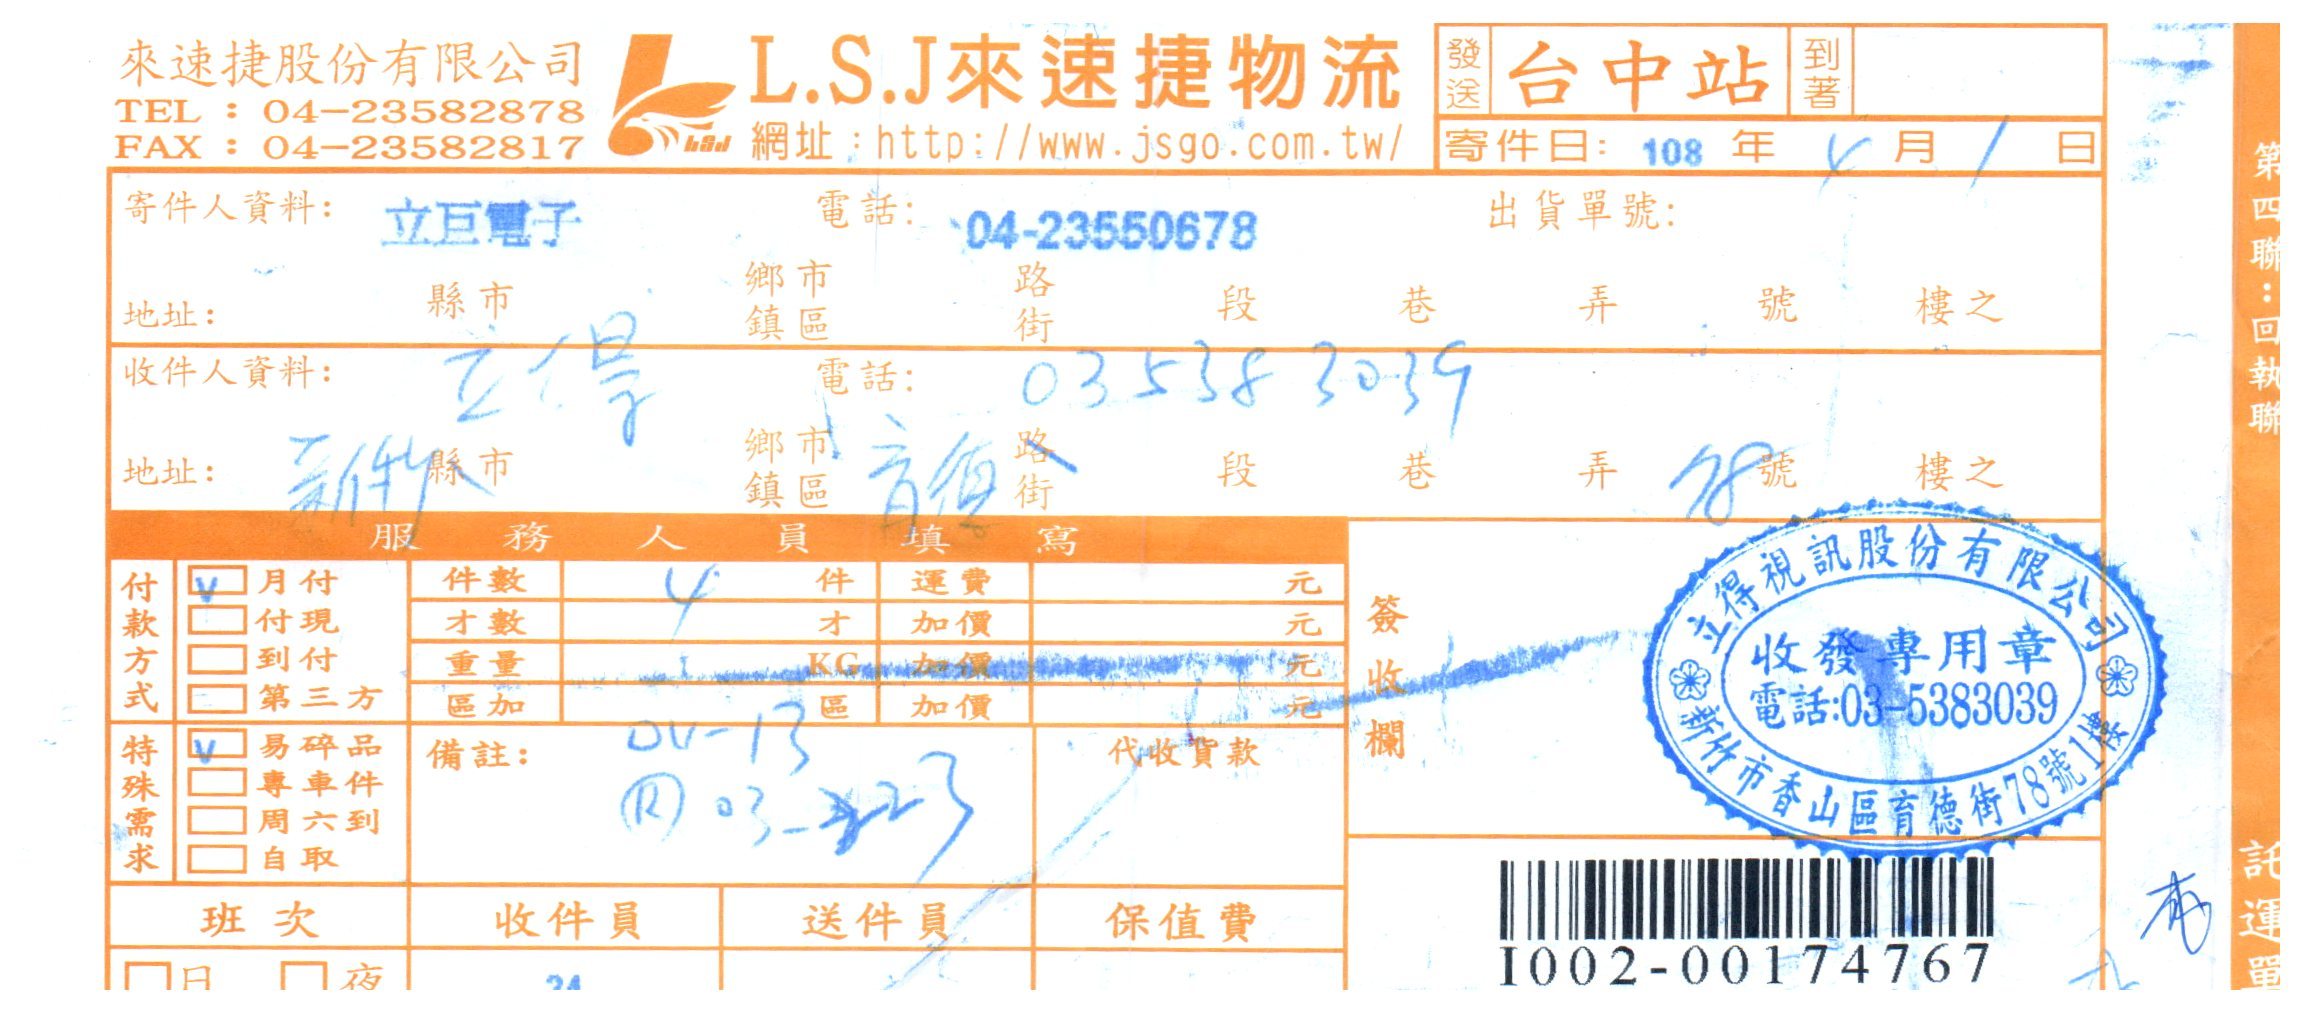 來速捷股份有限公司
TEL : 04-23582878
FAX : 04-23582817
L.S.J來速捷物流
網址:http://www.jsgo.com.tw/
發送 台中站 到著
寄件日: 108 年 4 月 1 日
寄件人資料: 立巨電子 電話: 04-23550678 出貨單號:
地址: 縣市 鄉鎮市區 路街 段 巷 弄 號 樓之
收件人資料: 立得 電話: 035383039
地址: 新竹 縣市 鄉鎮市區 育德 路街 段 巷 弄 78 號 樓之
服務人員填寫
付款方式
V 月付
付現
到付
第三方
件數 4 件 運費 元
才數 才 加價 元
重量 KG 加價 元
區加 區 加價 元
特殊需求
V 易碎品
專車件
周六到
自取
備註:
DV-13
代收貨款
簽收欄
立得視訊股份有限公司
收發專用章
電話:03-5383039
新竹市香山區育德街78號1樓
班次 收件員 送件員 保值費
日 夜 24
I002-00174767
第四聯:回執聯
託運單